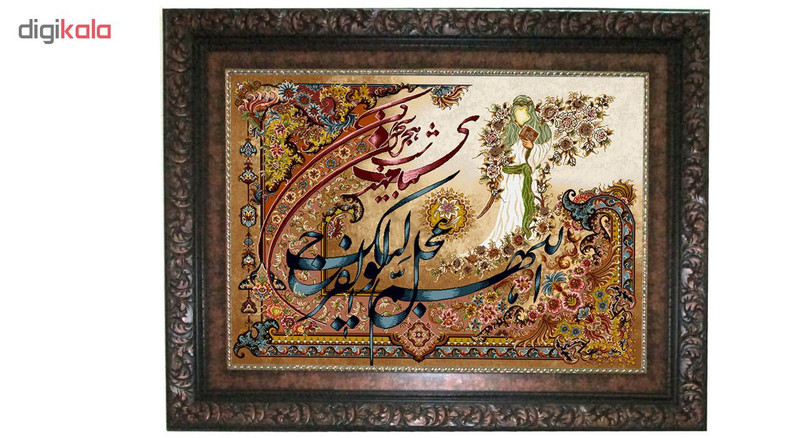 digikala
هجران
اللهم عجل لولیک الفرج